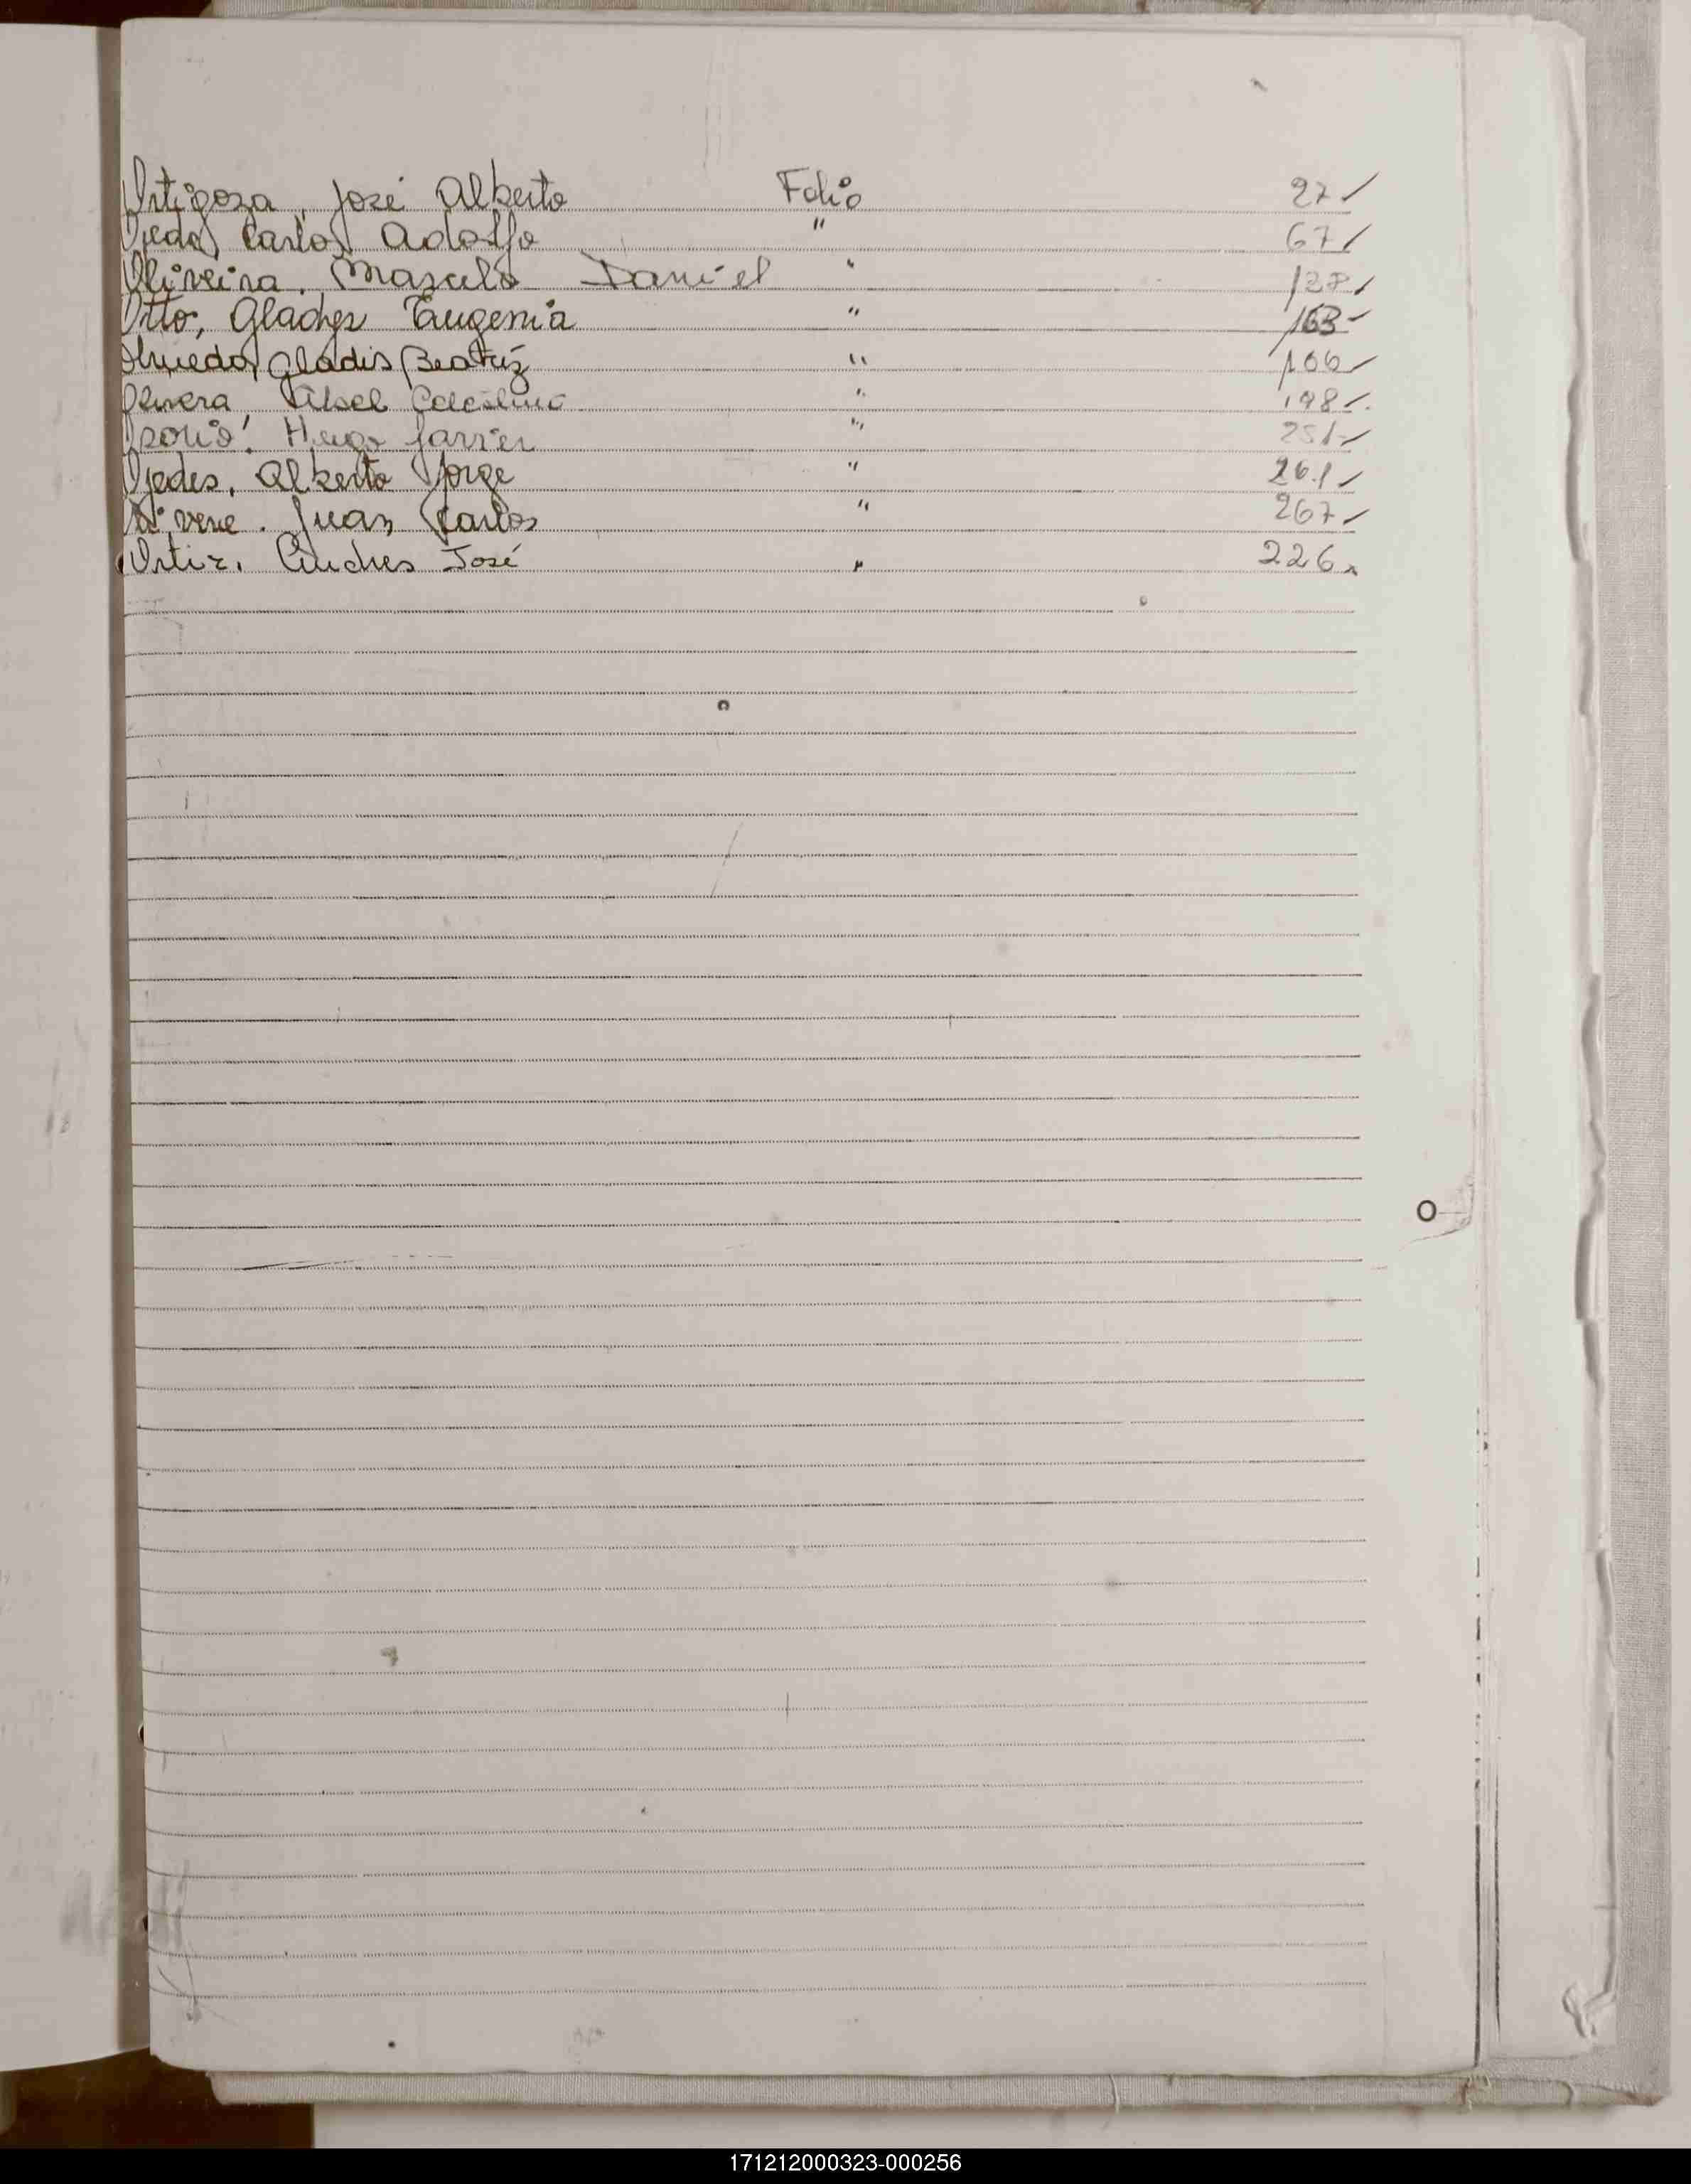 Ortigoza, José Alberto Folio 27
Ojeda, Carlos Adolfo " 67
Oliveira. Marcelo Daniel " 127
Otto, Gladys Eugenia " 163
Olmedo, Gladis Beatriz " 166
Olivera Abel Celestino " 198
Osorio, Hugo Javier " 251
Ojedes, Alberto Jorge " 261
Juan Carlos " 267
Ortiz, Andres José " 226
171212000323-000256